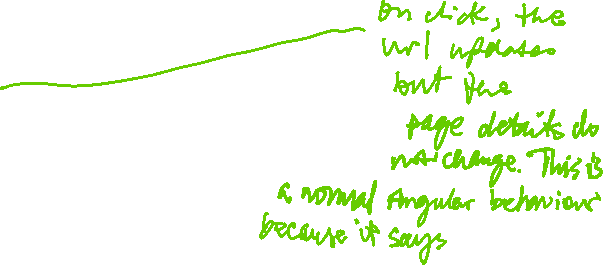 on click, the
url updates
but the
page details do
not change. This is
a normal Angular behaviour
because it says